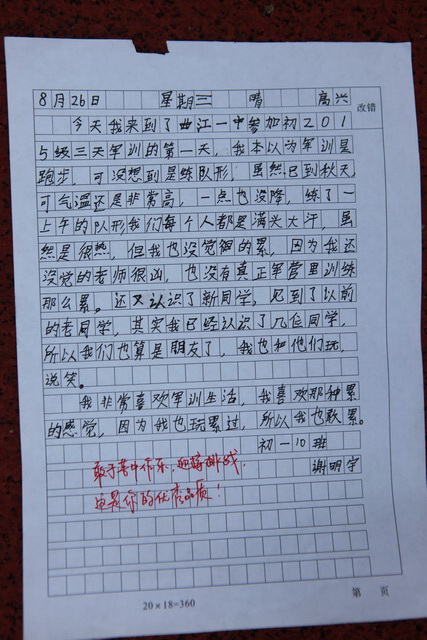 8月26日 星期三 晴 高兴
改错
今天我来到了曲江一中参加初201
5级三天军训的第一天，我本以为军训是
跑步，可没想到是练队形，虽然已到秋天，
可气温还是非常高，一点也没降，练了一
上午的队形我们每个人都是满头大汗，虽
然是很热，但我也没觉得的累，因为我还
没觉的老师很凶，也没有真正军营里训练
那么累。还又认识了新同学，见到了以前
的老同学，其实我已经认识了几位同学，
所以我们也算是朋友了，我也和他们玩，
说笑。
我非常喜欢军训生活，我喜欢那种累
的感觉，因为我也玩累过，所以我也歇累。
初一10班
谢明宇
敢于苦中作乐，迎接挑战，
也是你的优秀品质！
20×18=360
第 页